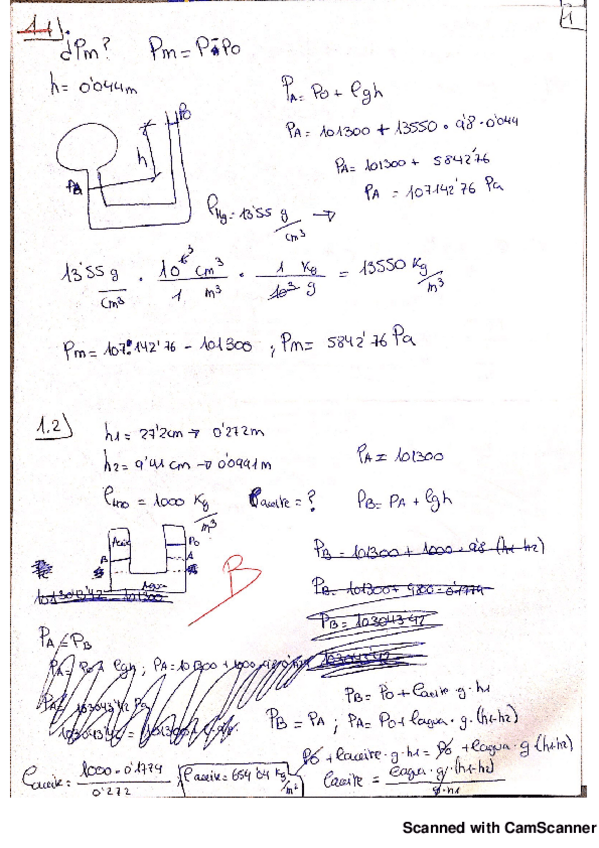 1.1)
1
¿Pm? Pm = P - P0
h = 0'044m
PA = P0 + ρgh
PA = 101300 + 13550 · 9'8 · 0'044
PA = 101300 + 5842'76
PA = 107142'76 Pa
P0
h
PA
ρHg = 13'55 g/cm³ →
13'55 g/cm³ · 10⁶ cm³/1 m³ · 1 Kg/10³ g = 13550 Kg/m³
Pm = 107142'76 - 101300 ; Pm = 5842'76 Pa
1.2)
h1 = 27'2cm → 0'272m
h2 = 9'41 cm → 0'0941m
PA = 101300
ρH2O = 1000 Kg/m³ ρaceite = ?
PB = PA + ρgh
Aceite
P0
B
A
Agua
PB = 101300 + 1000 · 9'8 (h1-h2)
PB = 101300 + 9800 · 0'1774
PB = 103043'42
B
PA = PB
PB = P0 + ρaceite · g · h1
PB = PA ; PA = P0 + ρagua · g · (h1-h2)
P0 + ρaceite · g · h1 = P0 + ρagua · g (h1-h2)
ρaceite = 1000 · 0'1774 / 0'272
ρaceite = 654'04 Kg/m³
ρaceite = ρagua · g · (h1-h2) / g · h1
Scanned with CamScanner